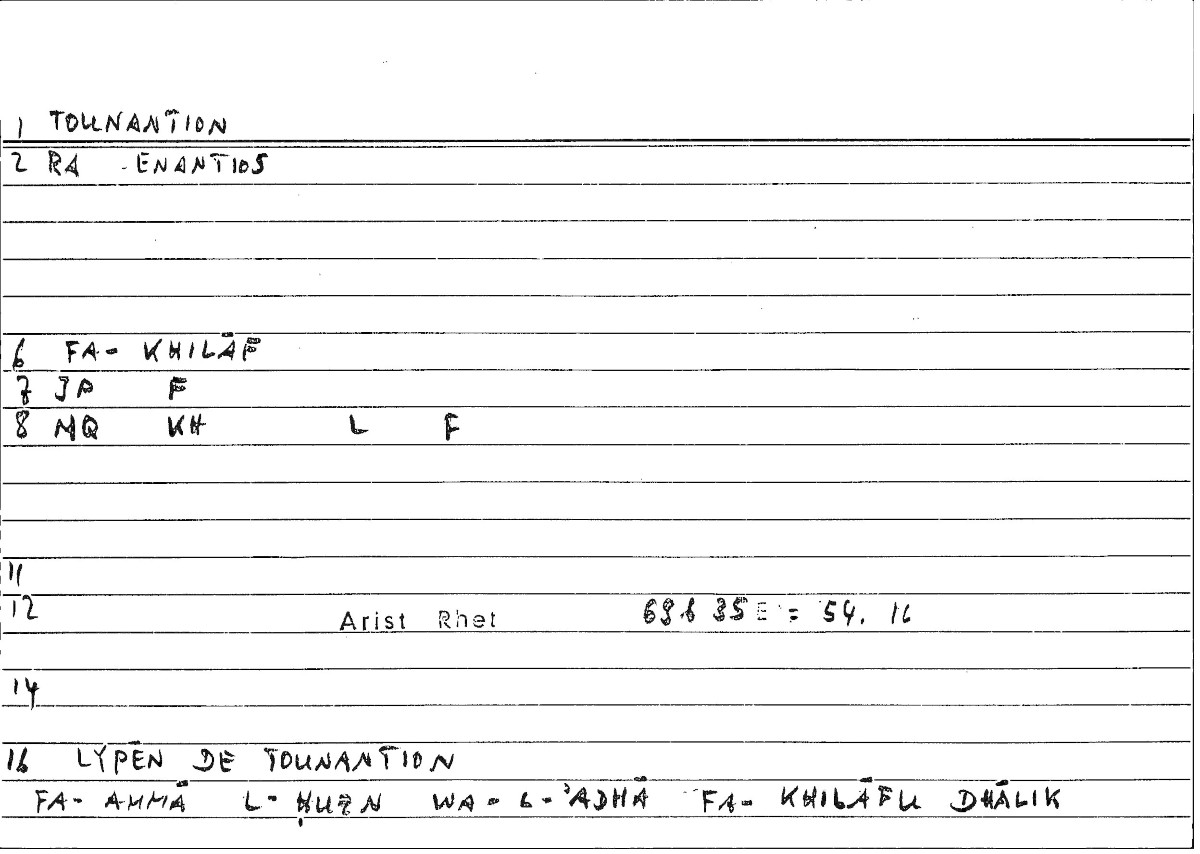 1 TOUNANTION
2 RA - ENANTIOS
6 FA- KHILĀF
7 JP F
8 MQ KH L F
11
12 Arist Rhet 69b 35 = 54. 16
14
16 LYPĒN DE TOUNANTION
FA- AMMĀ L-ḤUZN WA-L-ʾADHĀ FA- KHILĀFU DHĀLIK